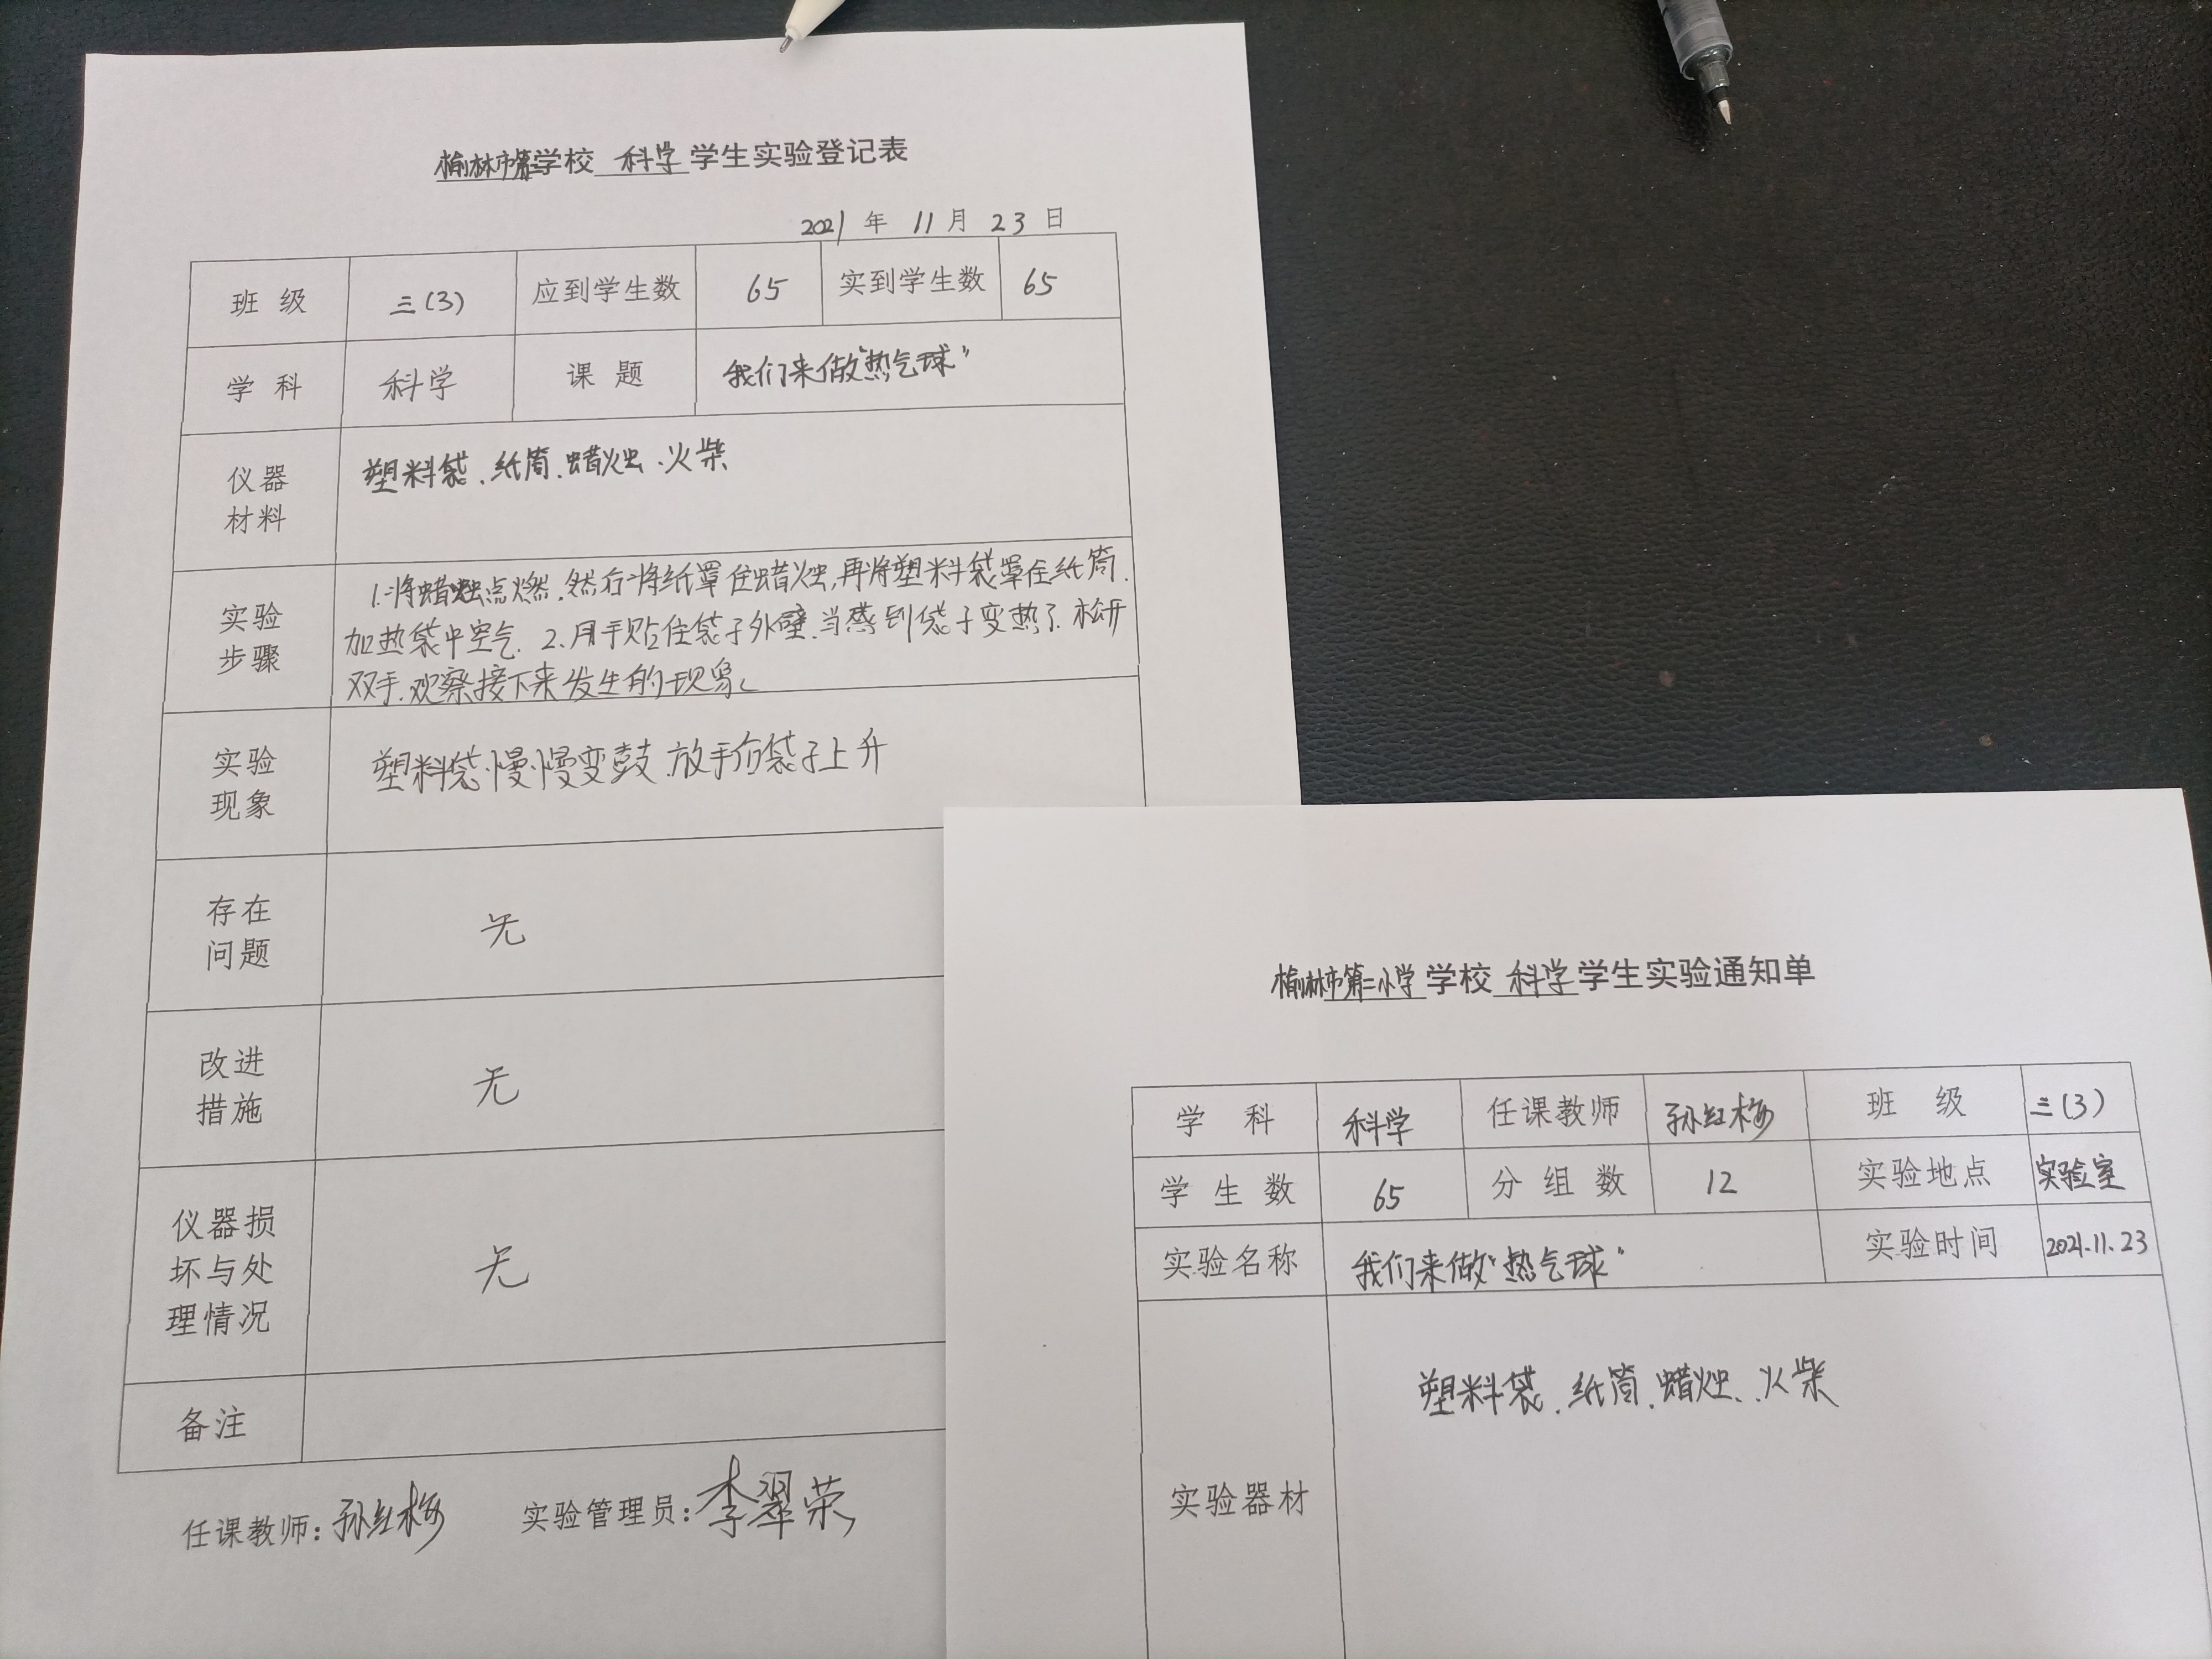 榆林市第二学校 科学 学生实验登记表
2021 年 11 月 23 日
班 级 三(3) 应到学生数 65 实到学生数 65
学 科 科学 课 题 我们来做"热气球"
仪器
材料
塑料袋、纸筒、蜡烛、火柴
实验
步骤
1.将蜡烛点燃,然后将纸罩住蜡烛,再将塑料袋罩住纸筒.
加热袋中空气. 2.用手贴住袋子外壁.当感到袋子变热了.松开
双手.观察接下来发生的现象。
实验
现象
塑料袋慢慢变鼓.放手后袋子上升
存在
问题
无
改进
措施
无
仪器损
坏与处
理情况
无
备注
任课教师:孙红梅 实验管理员:李翠荣
榆林市第二小学 学校 科学 学生实验通知单
学 科 科学 任课教师 孙红梅 班 级 三(3)
学 生 数 65 分 组 数 12 实验地点 实验室
实验名称 我们来做"热气球" 实验时间 2021.11.23
实验器材
塑料袋、纸筒、蜡烛、火柴